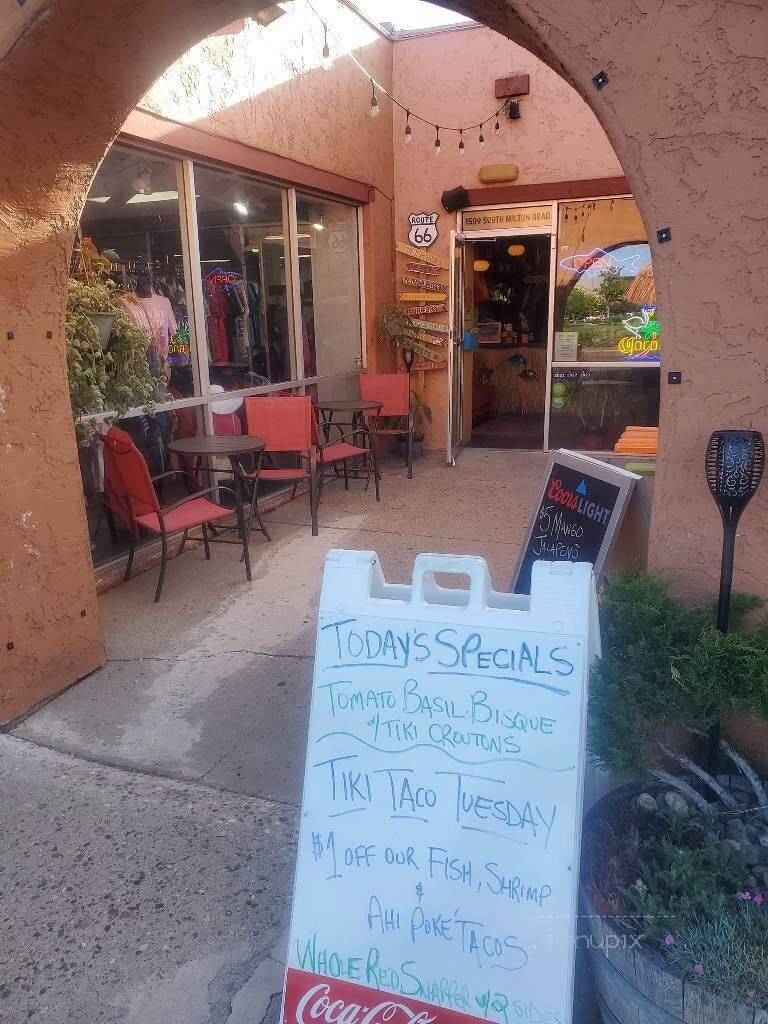 1509 SOUTH MILTON ROAD
ROUTE
66
OPEN
OPEN
Corona
BURGERS
Coors LIGHT
$5 MANGO
JALAPEÑO
TODAY'S SPECIALS
TOMATO BASIL BISQUE
W/ TIKI CROUTONS
TIKI TACO TUESDAY
$1 OFF OUR FISH, SHRIMP
&
AHI POKE' TACOS
WHOLE RED SNAPPER W/2 SIDES
Coca-Cola
menupix